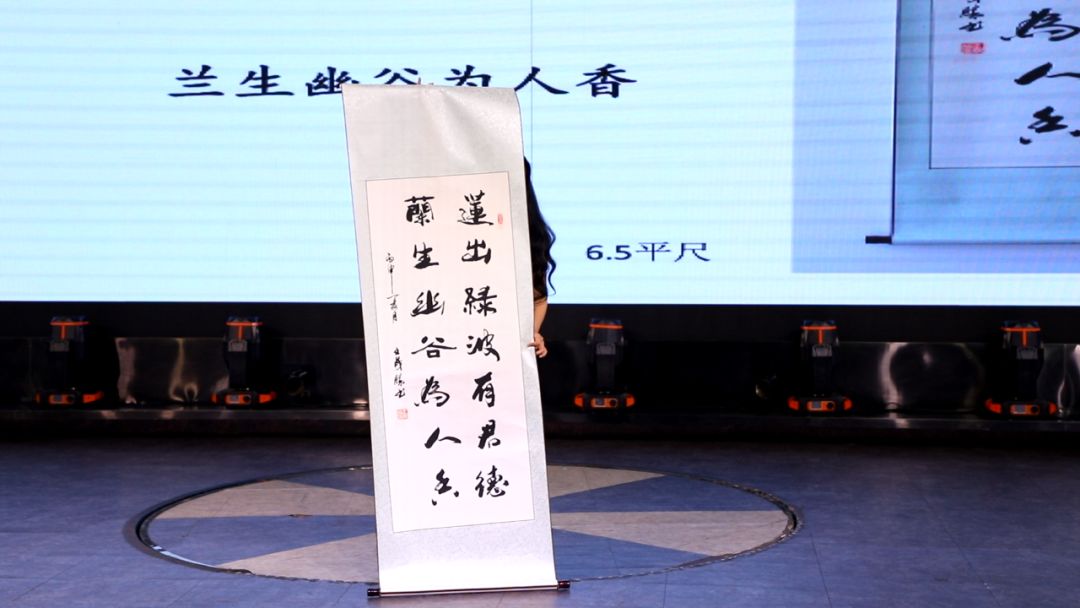 兰生幽谷为人香
6.5平尺
蓮出緑波有君德
蘭生幽谷為人香
丙申
為
人
香